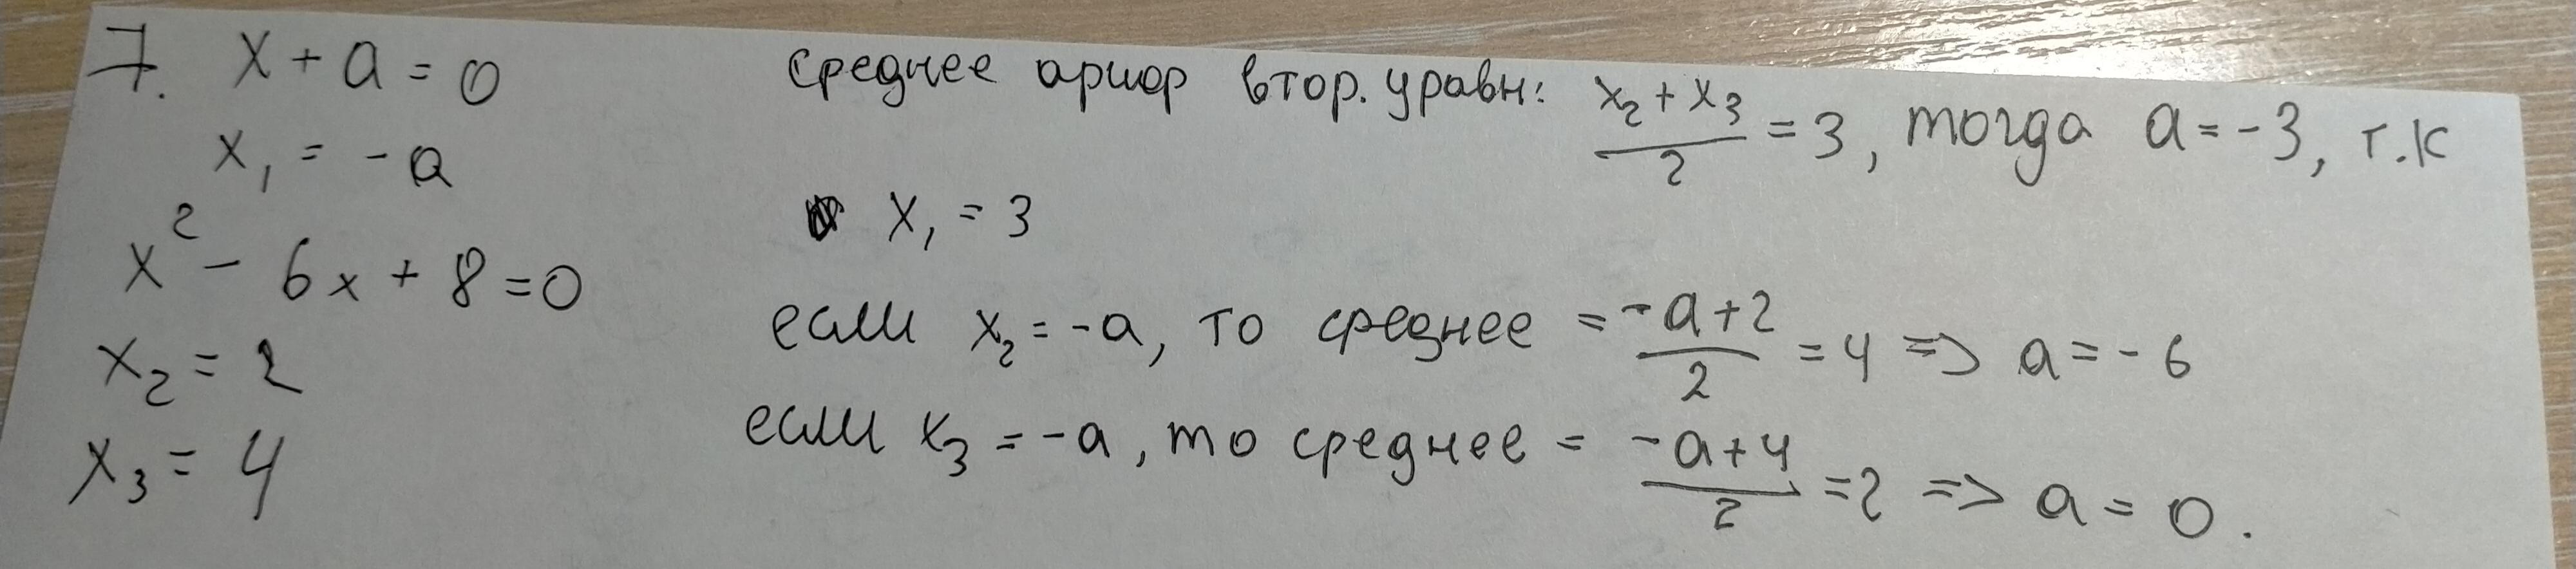 7. x + a = 0
x₁ = -a
x² - 6x + 8 = 0
x₂ = 2
x₃ = 4
Среднее ариф втор. уравн: (x₂ + x₃)/2 = 3, тогда a = -3, т.к
x₁ = 3
если x₂ = -a, то среднее = (-a+2)/2 = 4 => a = -6
если x₃ = -a, то среднее = (-a+4)/2 = 2 => a = 0.